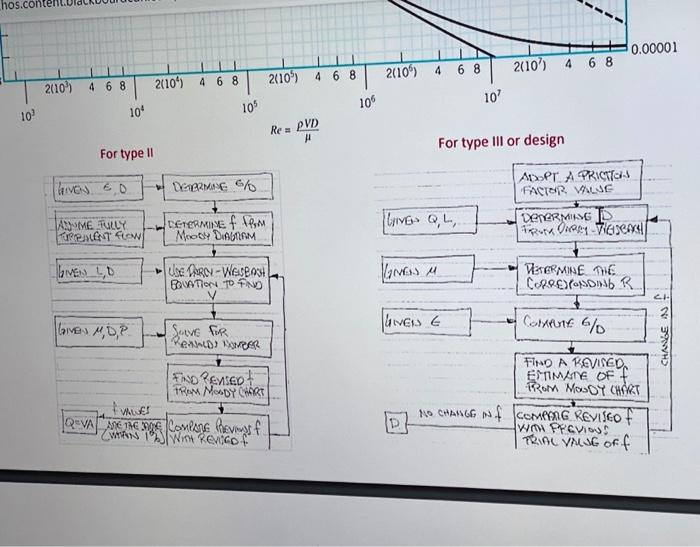 0.00001
2(10³) 4 6 8 2(10⁴) 4 6 8 2(10⁵) 4 6 8 2(10⁶) 4 6 8 2(10⁷) 4 6 8
10³ 10⁴ 10⁵ 10⁶ 10⁷
Re = ρVD
μ
For type II
GIVEN ε, D
DETERMINE ε/D
ASSUME FULLY
TURBULENT FLOW
DETERMINE f FROM
MOODY DIAGRAM
GIVEN L, D
USE DARCY-WEISBACH
EQUATION TO FIND
V
GIVEN μ, D, ρ
SOLVE FOR
REYNOLDS NUMBER
FIND REVISED f
FROM MOODY CHART
COMPARE PREVIOUS f
WITH REVISED f
f VALUES
ARE THE SAME
(WITHIN 1%)
Q=VA
For type III or design
ADOPT A FRICTION
FACTOR VALUE
GIVEN Q, L,
DETERMINE D
FROM DARCY-WEISBACH
GIVEN μ
DETERMINE THE
CORRESPONDING R
GIVEN ε
COMPUTE ε/D
FIND A REVISED
ESTIMATE OF f
FROM MOODY CHART
COMPARE REVISED f
WITH PREVIOUS
TRIAL VALUE OF f
NO CHANGE IN f
D
CHANGE IN f